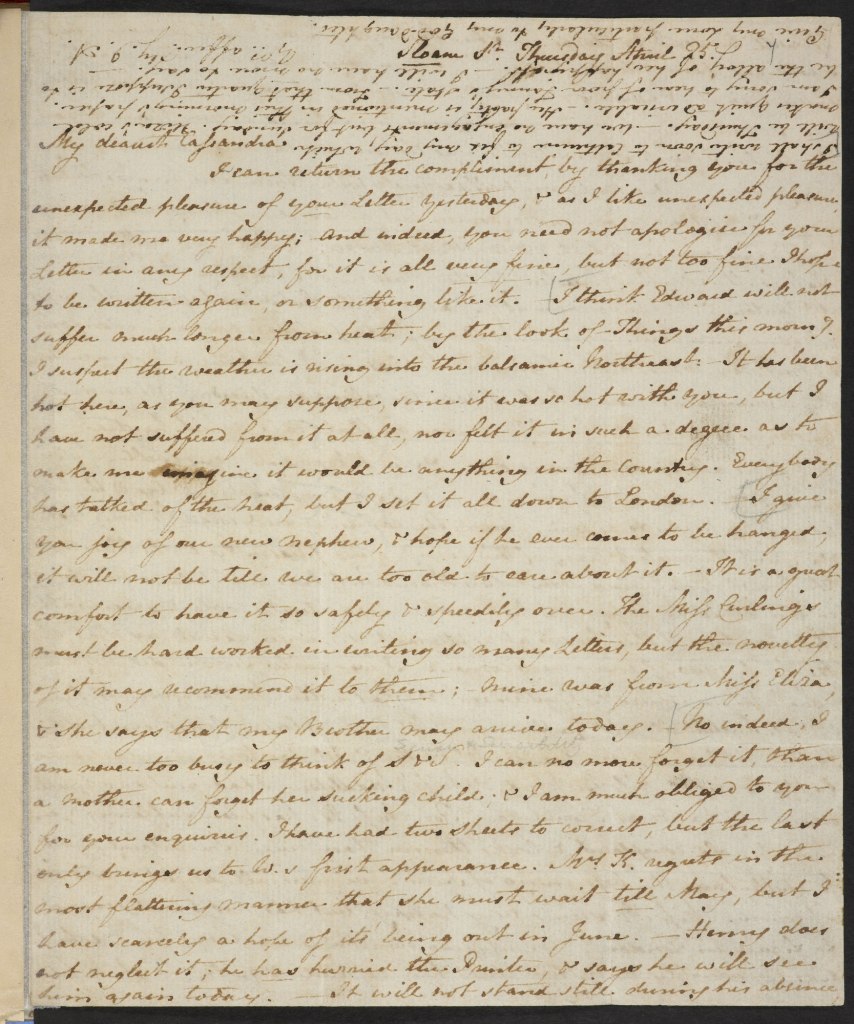 Sloane St. Thursday April 25.
My dearest Cassandra
I can return the compliment by thanking you for the
unexpected pleasure of your Letter yesterday, & as I like unexpected pleasure,
it made me very happy; And indeed, you need not apologise for your
Letter in any respect, for it is all very fine, but not too fine I hope
to be written again, or something like it. I think Edward will not
suffer much longer from heat; by the look of Things this morng.
I suspect the weather is rising into the balsamic Northeast. It has been
hot here, as you may suppose, since it was so hot with you, but I
have not suffered from it at all, nor felt it in such a degree as to
make me imagine it would be anything in the Country. Everybody
has talked of the heat, but I set it all down to London. — I give
you joy of our new nephew, & hope if he ever comes to be hanged,
it will not be till we are too old to care about it. — It is a great
comfort to have it so safely & speedily over. The Miss Curlings
must be hard worked in writing so many Letters, but the novelty
of it may recommend it to them; — mine was from Miss Eliza,
& she says that my Brother may arrive today. No indeed, I
am never too busy to think of S & S. I can no more forget it, than
a mother can forget her sucking child; & I am much obliged to you
for your enquiries. I have had two sheets to correct, but the last
only brings us to W.s first appearance. Mrs K. regrets in the
most flattering manner that she must wait till May, but I
have scarcely a hope of its being out in June. — Henry does
not neglect it; he has hurried the Printer, & says he will see
him again today. — It will not stand still during his absence,
I shall write soon to Catherine to fix my day, which
will be Thursday. — We have no engagements but for Sunday. Eliza's cold
makes quiet adviseable. — Her party is mentioned in this morning's paper.
I am sorry to hear of poor Fanny's state. — From that quarter I suppose is to
be the alloy of her happiness. — I will have no more to say. —
Yrs affecly. J. A.
Give my Love particularly to my God-Daughter.